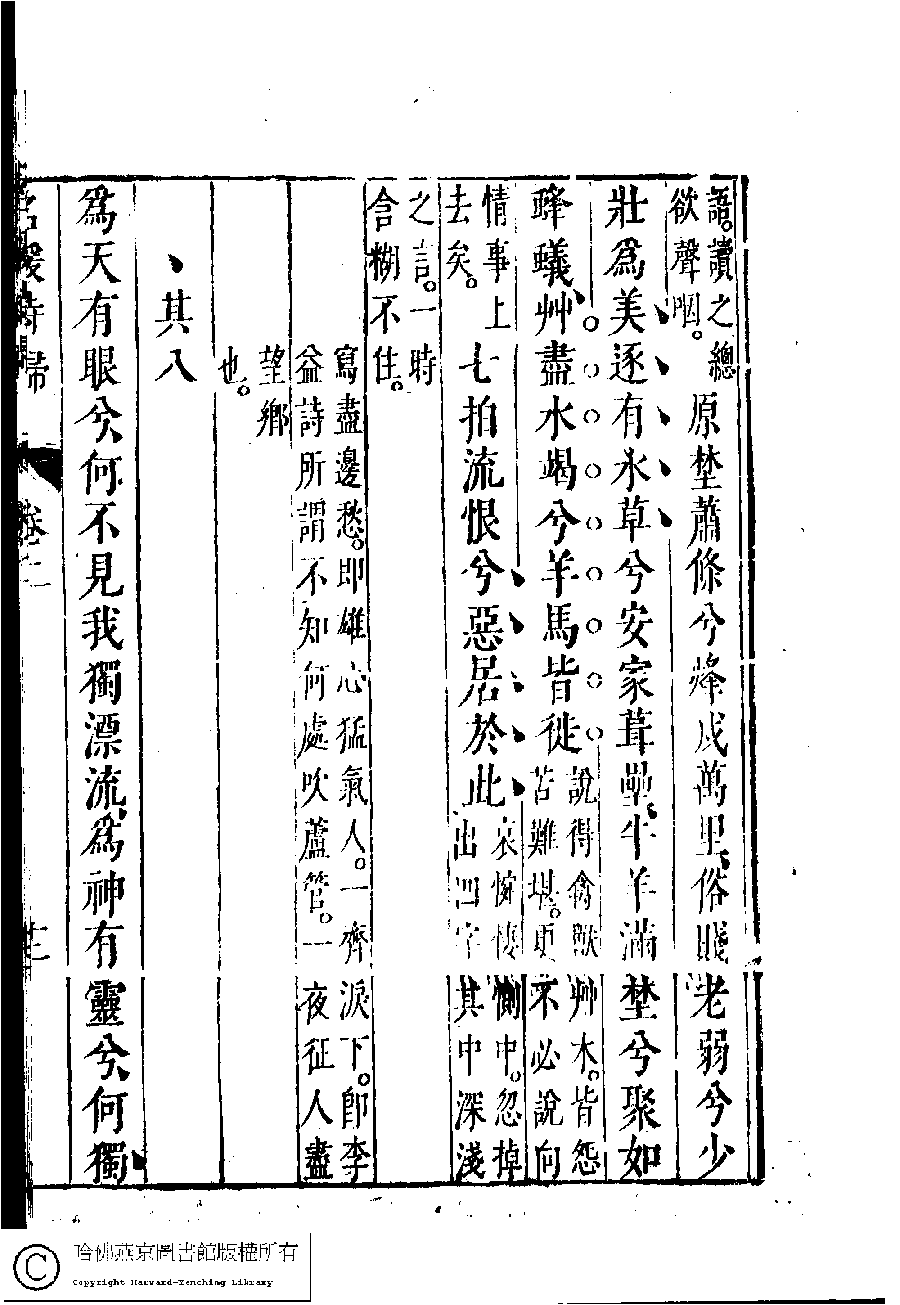 語。讀之總欲聲咽。原埜蕭條兮烽戍萬里、俗賤老弱兮少
壯爲美逐有水草兮安家葺壘、牛羊滿埜兮聚如
蜂蟻、艸盡水竭兮羊馬皆徙說得禽獸艸木。皆怨苦難堪。更不必說向
情事上去矣。七拍流恨兮惡居於此哀惋悽惻中。忽掉出四字其中深淺
之言。一時含糊不住。
寫盡邊愁。即雄心猛氣人。一齊淚下。即李
益詩所謂不知何處吹蘆管。一夜征人盡
望鄉也。
其八
爲天有眼兮、何不見我獨漂流、爲神有靈兮、何獨
名媛詩歸 卷二
哈佛燕京圖書館版權所有
Copyright Harvard-Yenching Library